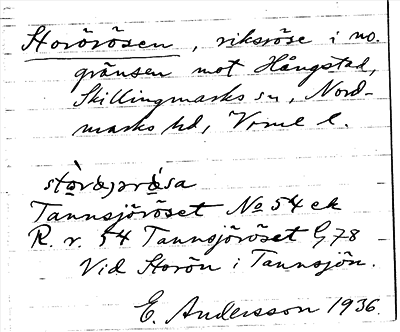 Storörösen, riksröse i no.
gränsen mot Hångstad,
Skillingmarks sn, Nord-
marks hd, Vrml l.
Tannsjöröset No 54 ek
R. r. 54 Tannsjöröset G 78 -
Vid Storön i Tannsjön.
E. Andersson 1936.